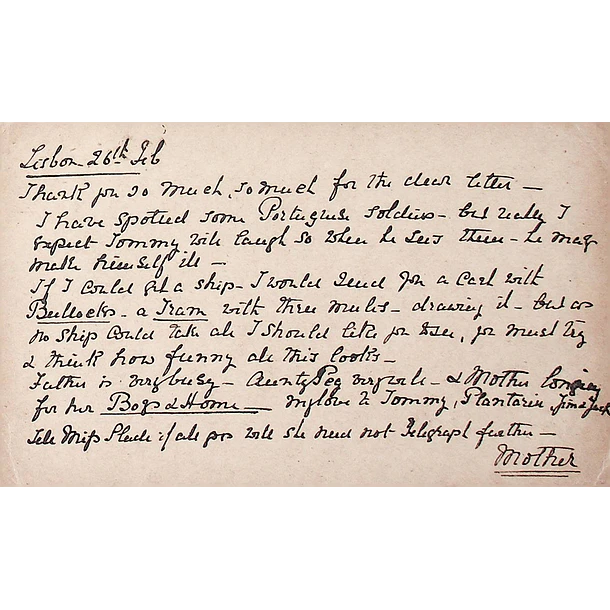 Lisbon - 26th Feb
Thank you so much, so much for the dear letter -
I have spotted some Portuguese soldiers - but really I
expect Tommy will laugh so when he sees them - he may
make himself ill -
If I could get a ship - I would send you a cart with
Bullocks - a Tram with three mules - drawing it - but as
no ship could take all I should like you to see, you must try
& think how funny all this looks -
Father is very busy - Aunty Peg very well - & Mother longing
for her Boys & Home - My love to Tommy, Jim & Jack
Tell Miss Slade if all goes well she need not Telegraph further -
Mother